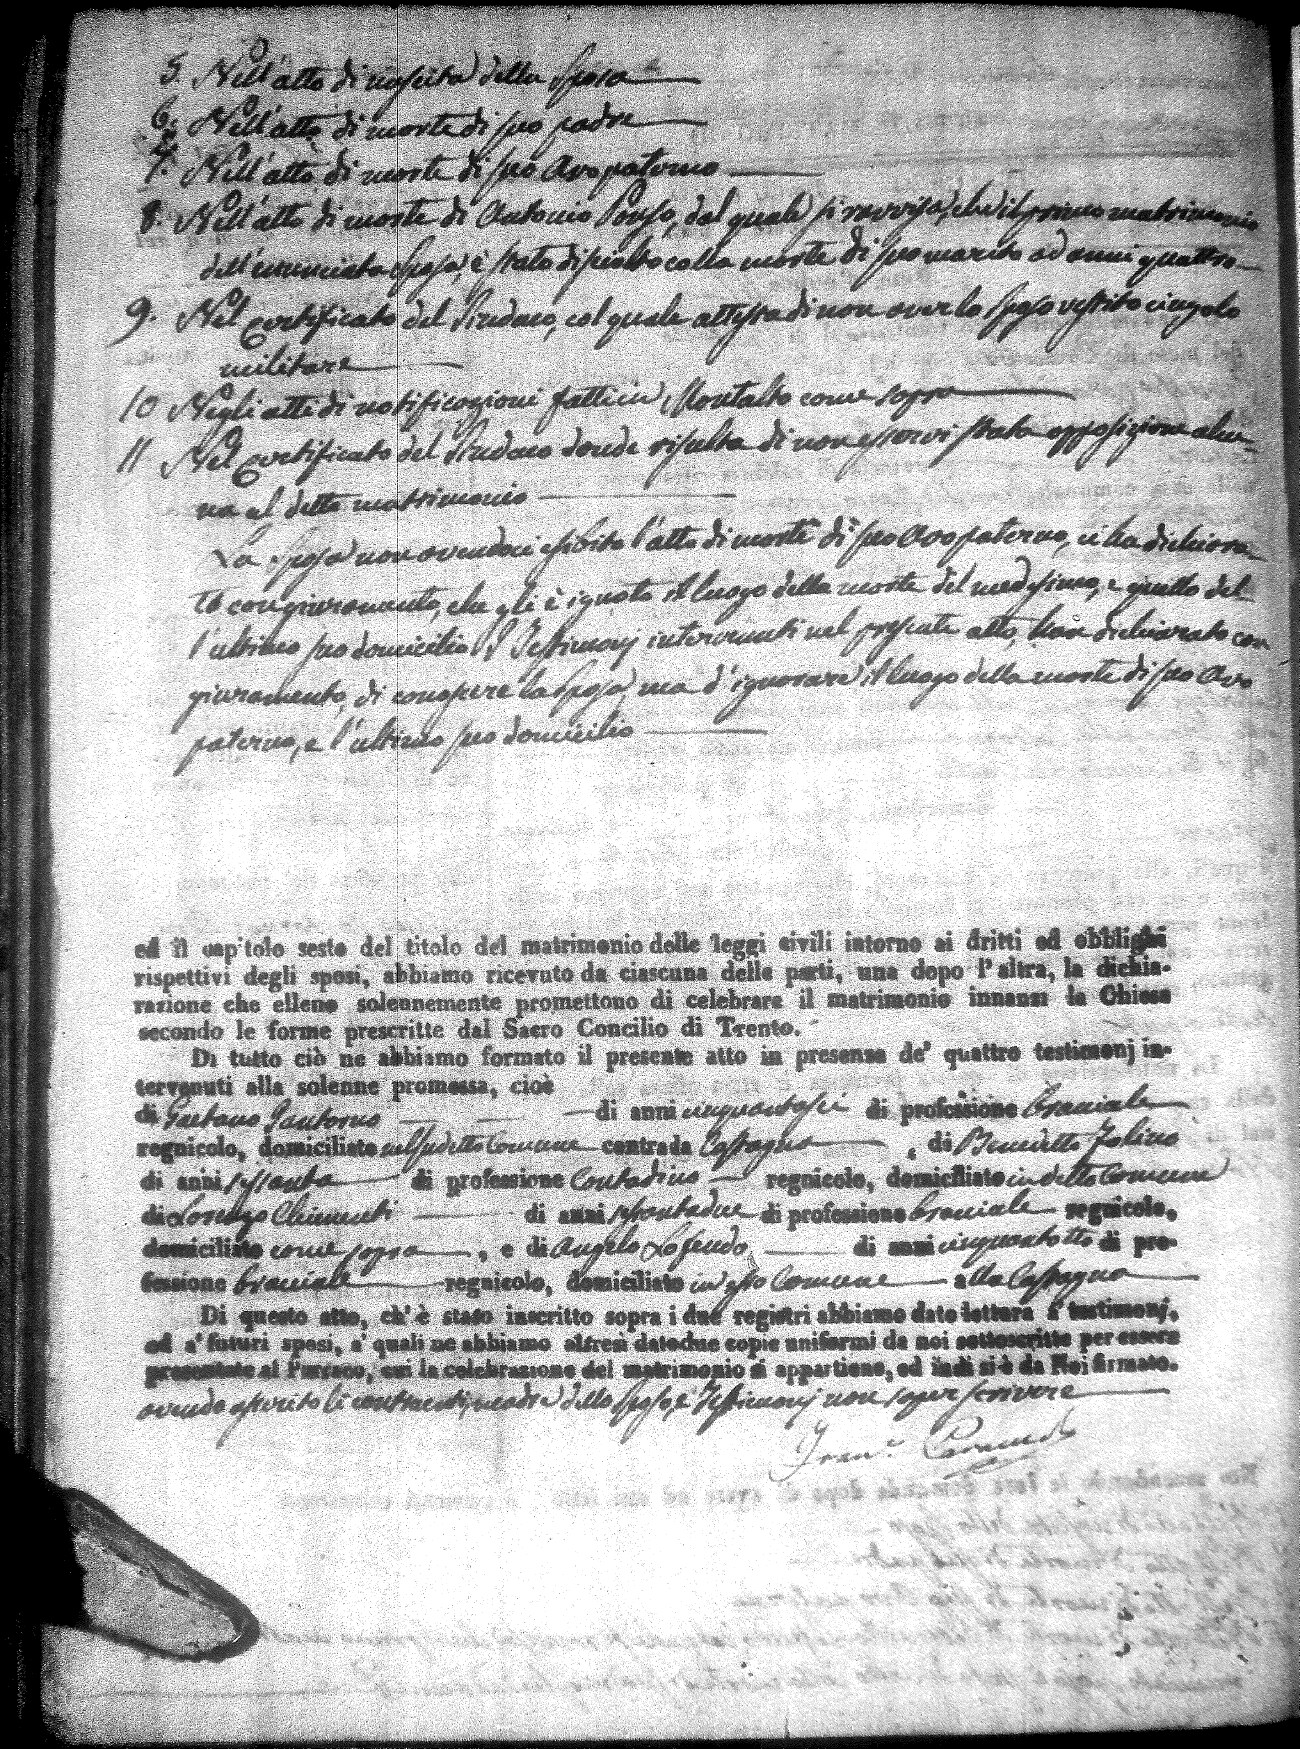 5. Nell'atto di nascita della Sposa
6. Nell'atto di morte di suo padre
7. Nell'atto di morte di suo Avo paterno
8. Nell'atto di morte di Antonio, dal quale si ravvisa, che il primo matrimonio
dell'enunciata Sposa, è stato disciolto colla morte di suo marito ad anni quattro
9. Nel Certificato del Sindaco, col quale attesta di non aver lo Sposo vestito cingolo
militare
10 Negli atti di notificazioni fatti in Montalto come sopra
11 Nel Certificato del Sindaco donde risulta di non esservi stata opposizione alcu-
na al detto matrimonio
La Sposa non avendoci esibito l'atto di morte di suo Avo paterno, ci ha dichiara
to con giuramento, che gli è ignoto il luogo della morte del medesimo, e quello del
l'ultimo suo domicilio. I Testimonj intervenuti nel presente atto, han dichiarato con
giuramento, di conoscere la Sposa, ma d'ignorare il luogo della morte di suo Avo
paterno, e l'ultimo suo domicilio
ed il capitolo sesto del titolo del matrimonio delle leggi civili intorno ai dritti ed obblighi
rispettivi degli sposi, abbiamo ricevuto da ciascuna delle parti, una dopo l'altra, la dichia-
razione che elleno solennemente promettono di celebrare il matrimonio innanzi la Chiesa
secondo le forme prescritte dal Sacro Concilio di Trento.
Di tutto ciò ne abbiamo formato il presente atto in presenza de' quattro testimonj in-
tervenuti alla solenne promessa, cioè
di Gaetano Santoro di anni cinquantasei di professione Bracciale
regnicolo, domiciliato nel sudetto Comune contrada Castagna, di Benedetto
di anni sessanta di professione Contadino regnicolo, domiciliato in detto Comune
di Lorenzo Chimenti di anni di professione bracciale regnicolo,
domiciliato come sopra, e di Angelo Lofeudo di anni cinquantotto di pro-
fessione bracciale regnicolo, domiciliato in esso Comune alla Castagna
Di questo atto, ch'è stato inscritto sopra i due registri abbiamo dato lettura a' testimonj,
ed a' futuri sposi, a' quali ne abbiamo altresì dato due copie uniformi da noi sottoscritte per essere
presentate al Parroco, cui la celebrazione del matrimonio si appartiene, ed indi si è da Noi firmato.
avendo asserito li contraenti, madre dello Sposo, e Testimonj non saper scrivere